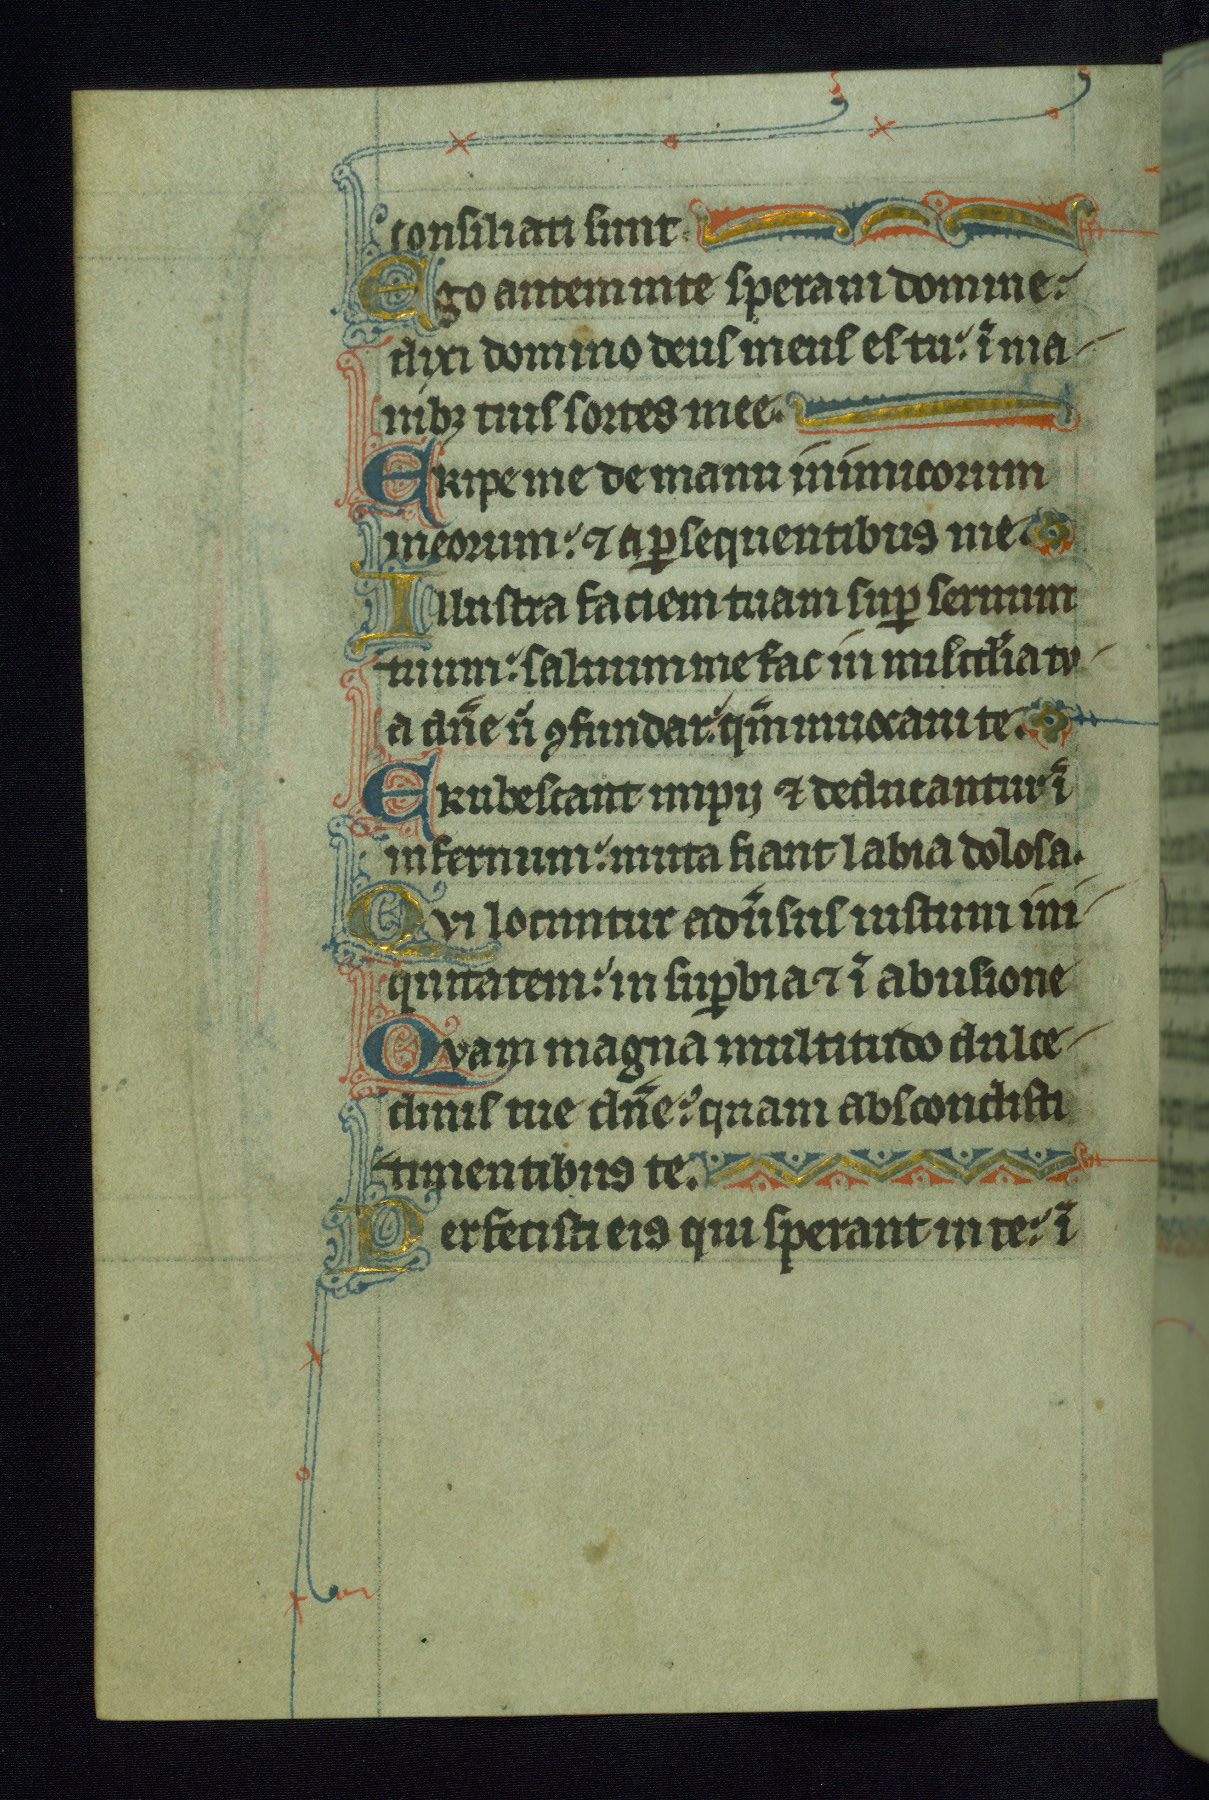 consiliati sunt.
Ego autem in te speraui domine:
dixi domino deus meus es tu: ī ma
nibꝫ tuis sortes mee.
Eripe me de manu inimicorum
meorum: ⁊ a ꝑsequentibus me.
Illustra faciem tuam suꝑ seruum
tuum: saluum me fac in misc̄dia tu
a dn̄e n̄ ꝯfundar: qm̄ inuocaui te.
Erubescant impij ⁊ deducantur ī
infernum: muta fiant labia dolosa.
Qui locuntur adūsus iustum ini
quitatem: in suꝑbia ⁊ ī abusione
Quam magna multitudo dulce
dinis tue dn̄e: quam abscondisti
timentibus te.
Perfecisti eis qui sperant in te: ī